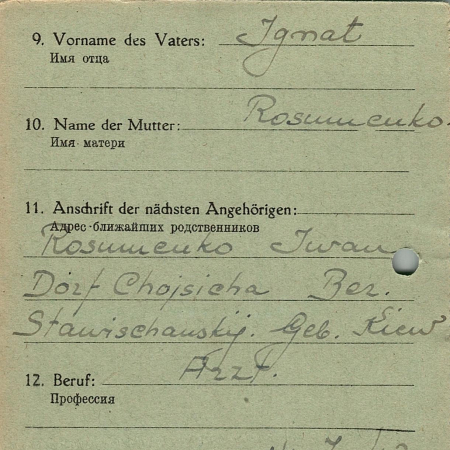 9. Vorname des Vaters: Ignat
Имя отца
10. Name der Mutter: Rosumenko
Имя матери
11. Anschrift der nächsten Angehörigen:
Адрес ближайших родственников
Rosumenko Iwan
Dorf Chojsicha Bez.
Stawischanskij. Geb. Kiew
12. Beruf: Arzt.
Профессия